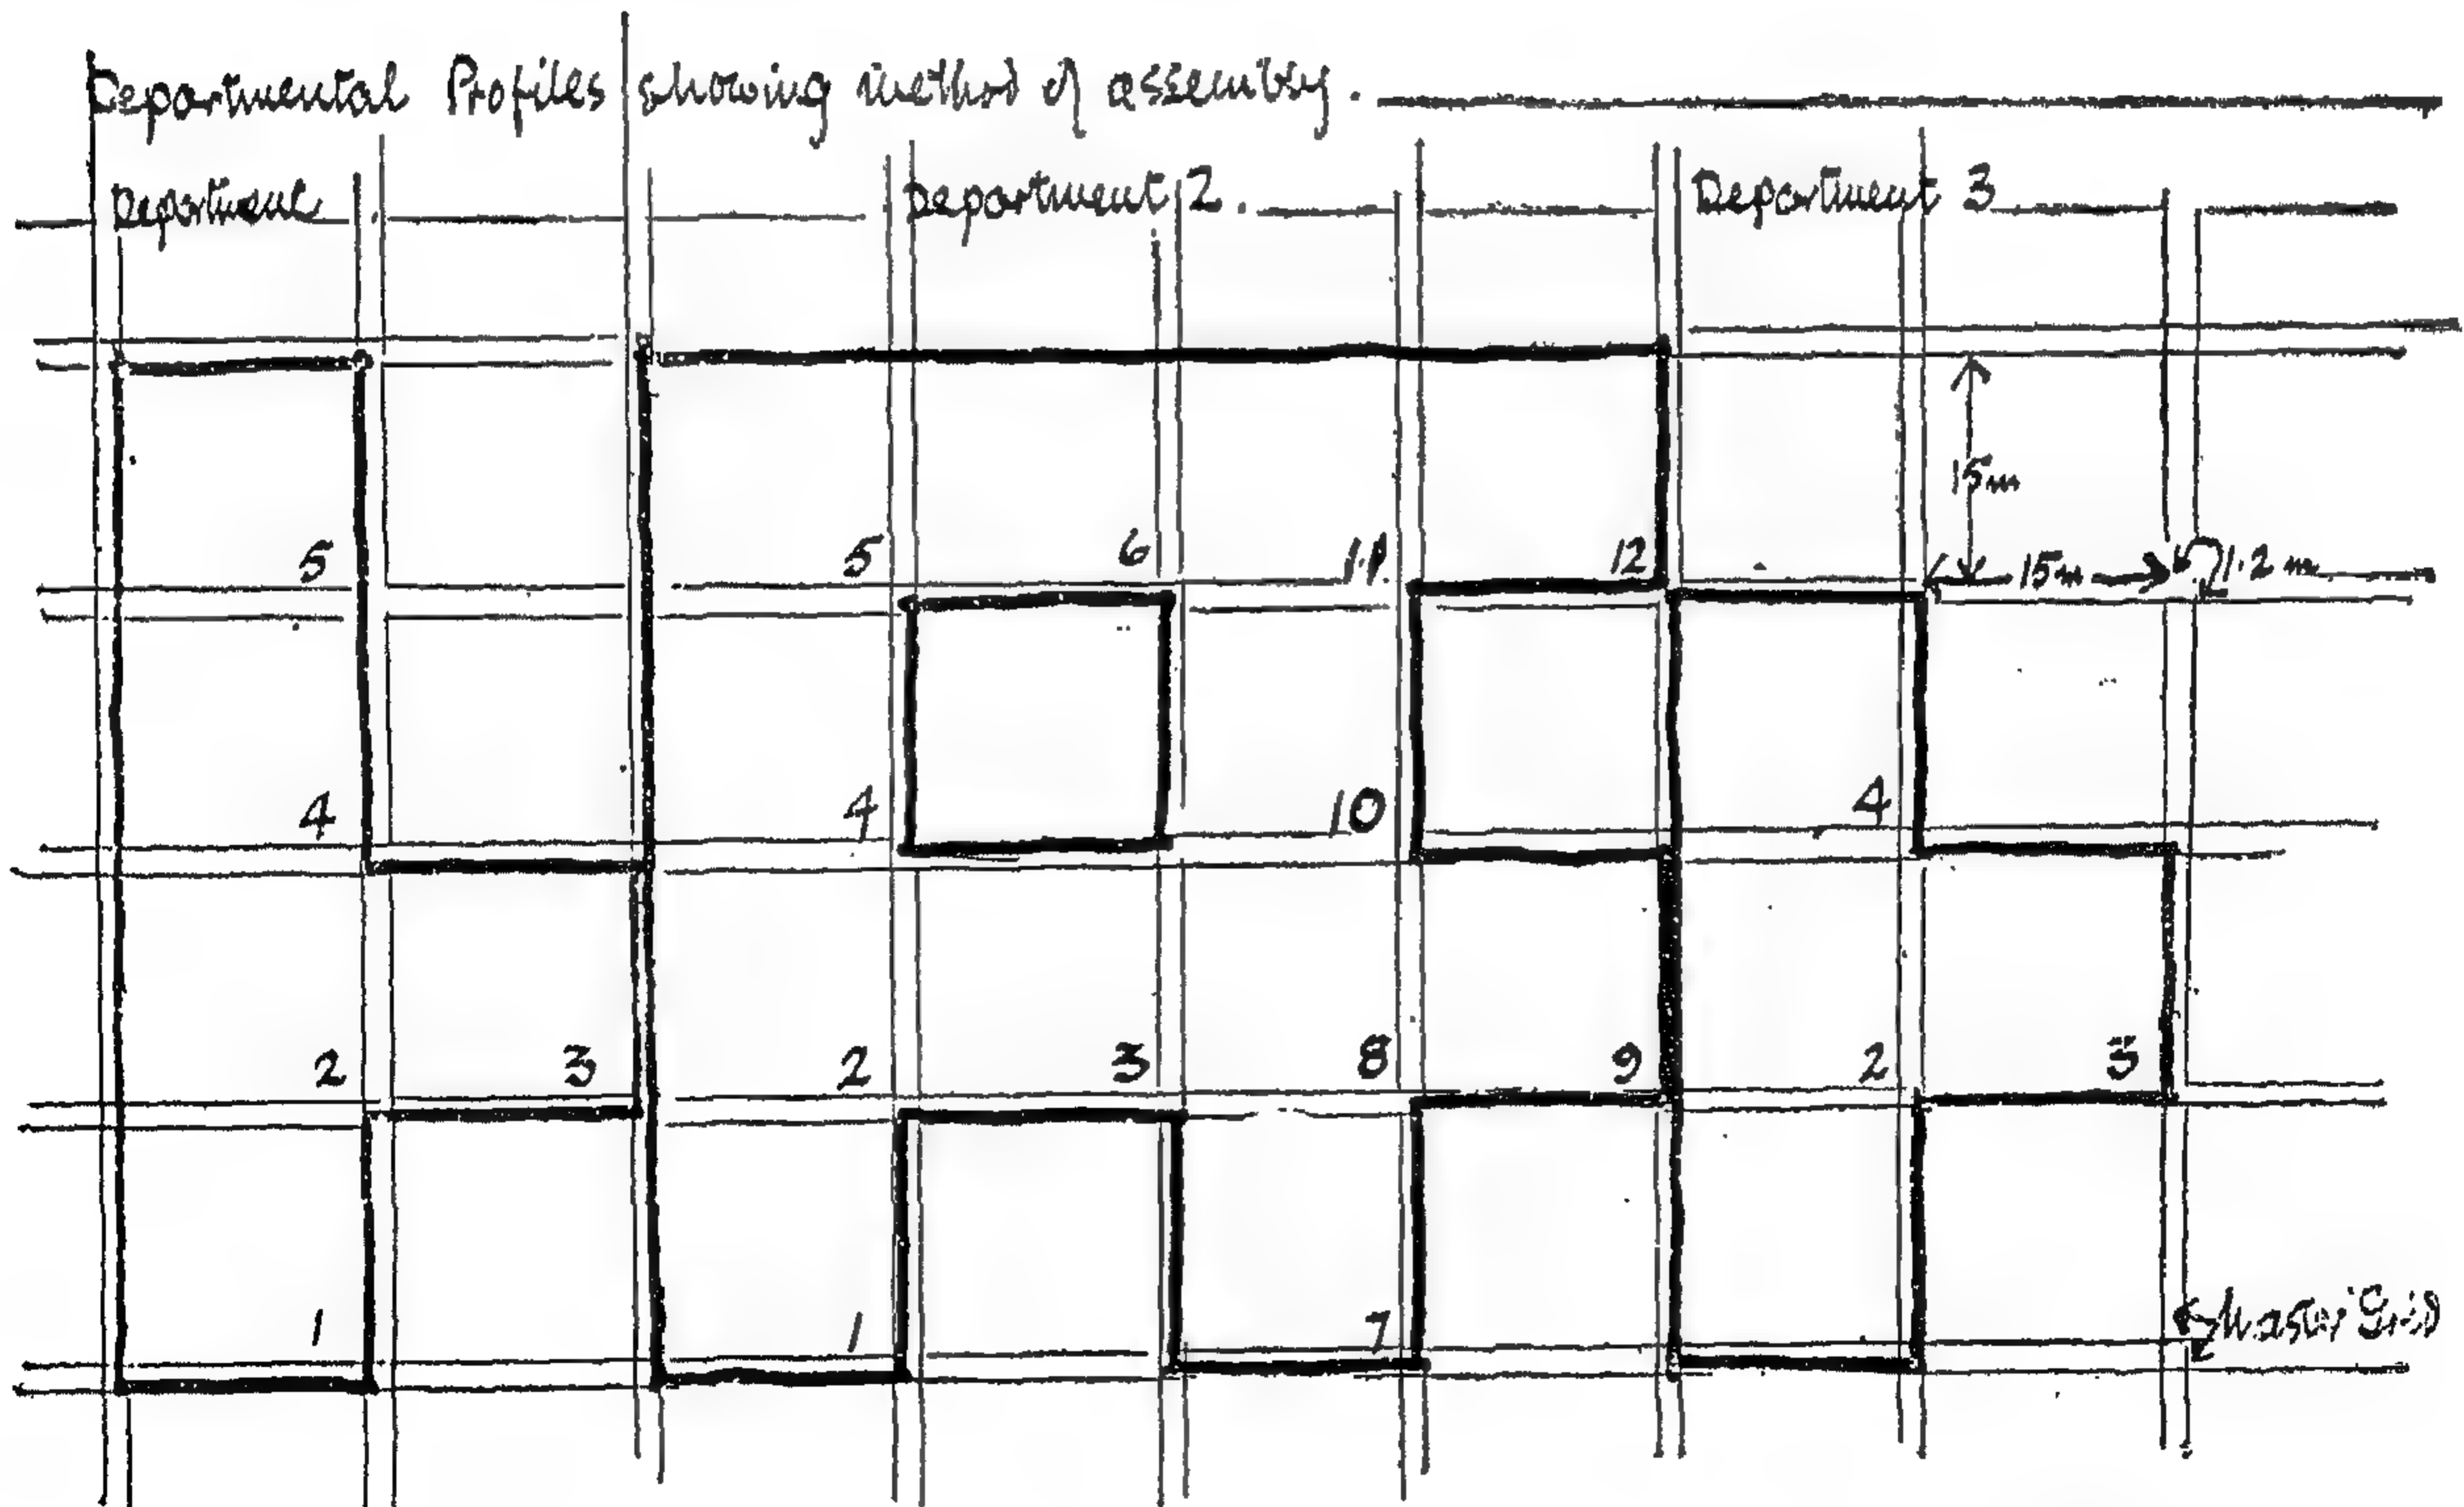 Departmental Profiles showing method of assembly.
Department 1. Department 2. Department 3
15m
5 5 6 11 12 15m 1.2 m
4 4 10 4
2 3 2 3 8 9 2 3
1 1 7 Master Grid